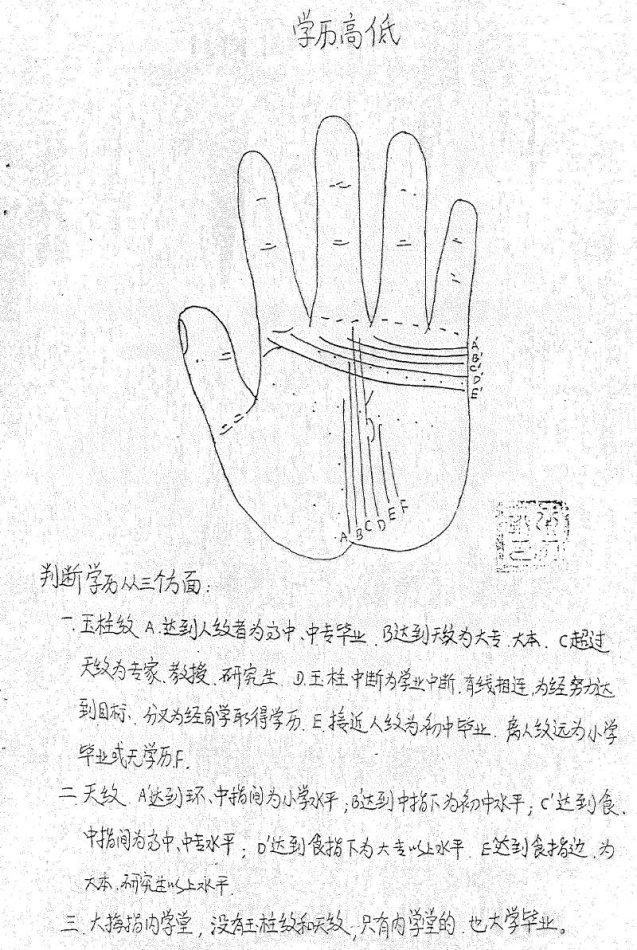 学历高低
A'
B'
C'
D'
E'
A B C D E F
判断学历从三个方面：
一.玉柱纹 A.达到人纹者为高中、中专毕业. B达到天纹为大专.大本. C超过
天纹为专家、教授、研究生. D.玉柱中断为学业中断.有线相连,为经努力达
到目标、分叉为经自学取得学历. E.接近人纹为初中毕业. 离人纹远为小学
毕业或无学历F.
二 天纹. A'达到环、中指间为小学水平；B'达到中指下为初中水平；C'达到食.
中指间为高中、中专水平；D'达到食指下为大专以上水平. E'达到食指边.为
大本.研究生以上水平.
三.大拇指内学堂，没有玉柱纹和天纹,只有内学堂的.也大学毕业。